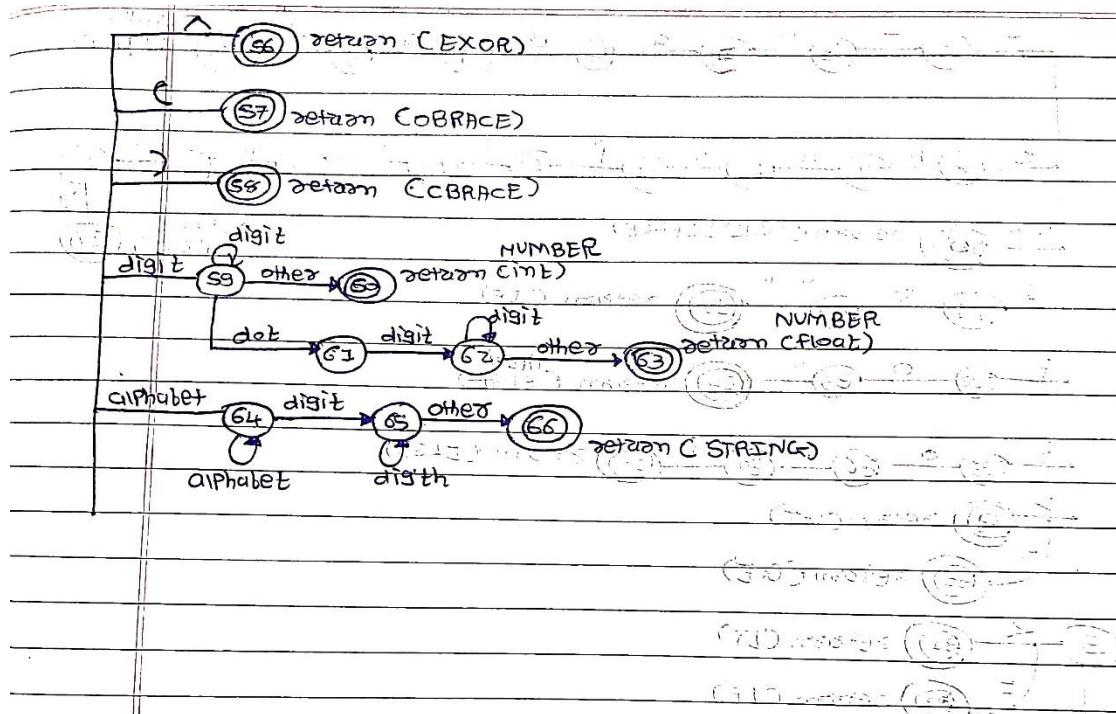 ^
56 return (EXOR)
(
57 return (OBRACE)
)
58 return (CCBRACE)
digit
NUMBER
digit 59 other 60 return (int)
digit
NUMBER
dot 61 digit 62 other 63 return (float)
alphabet 64 digit 65 other 66
return ( STRING)
alphabet digith